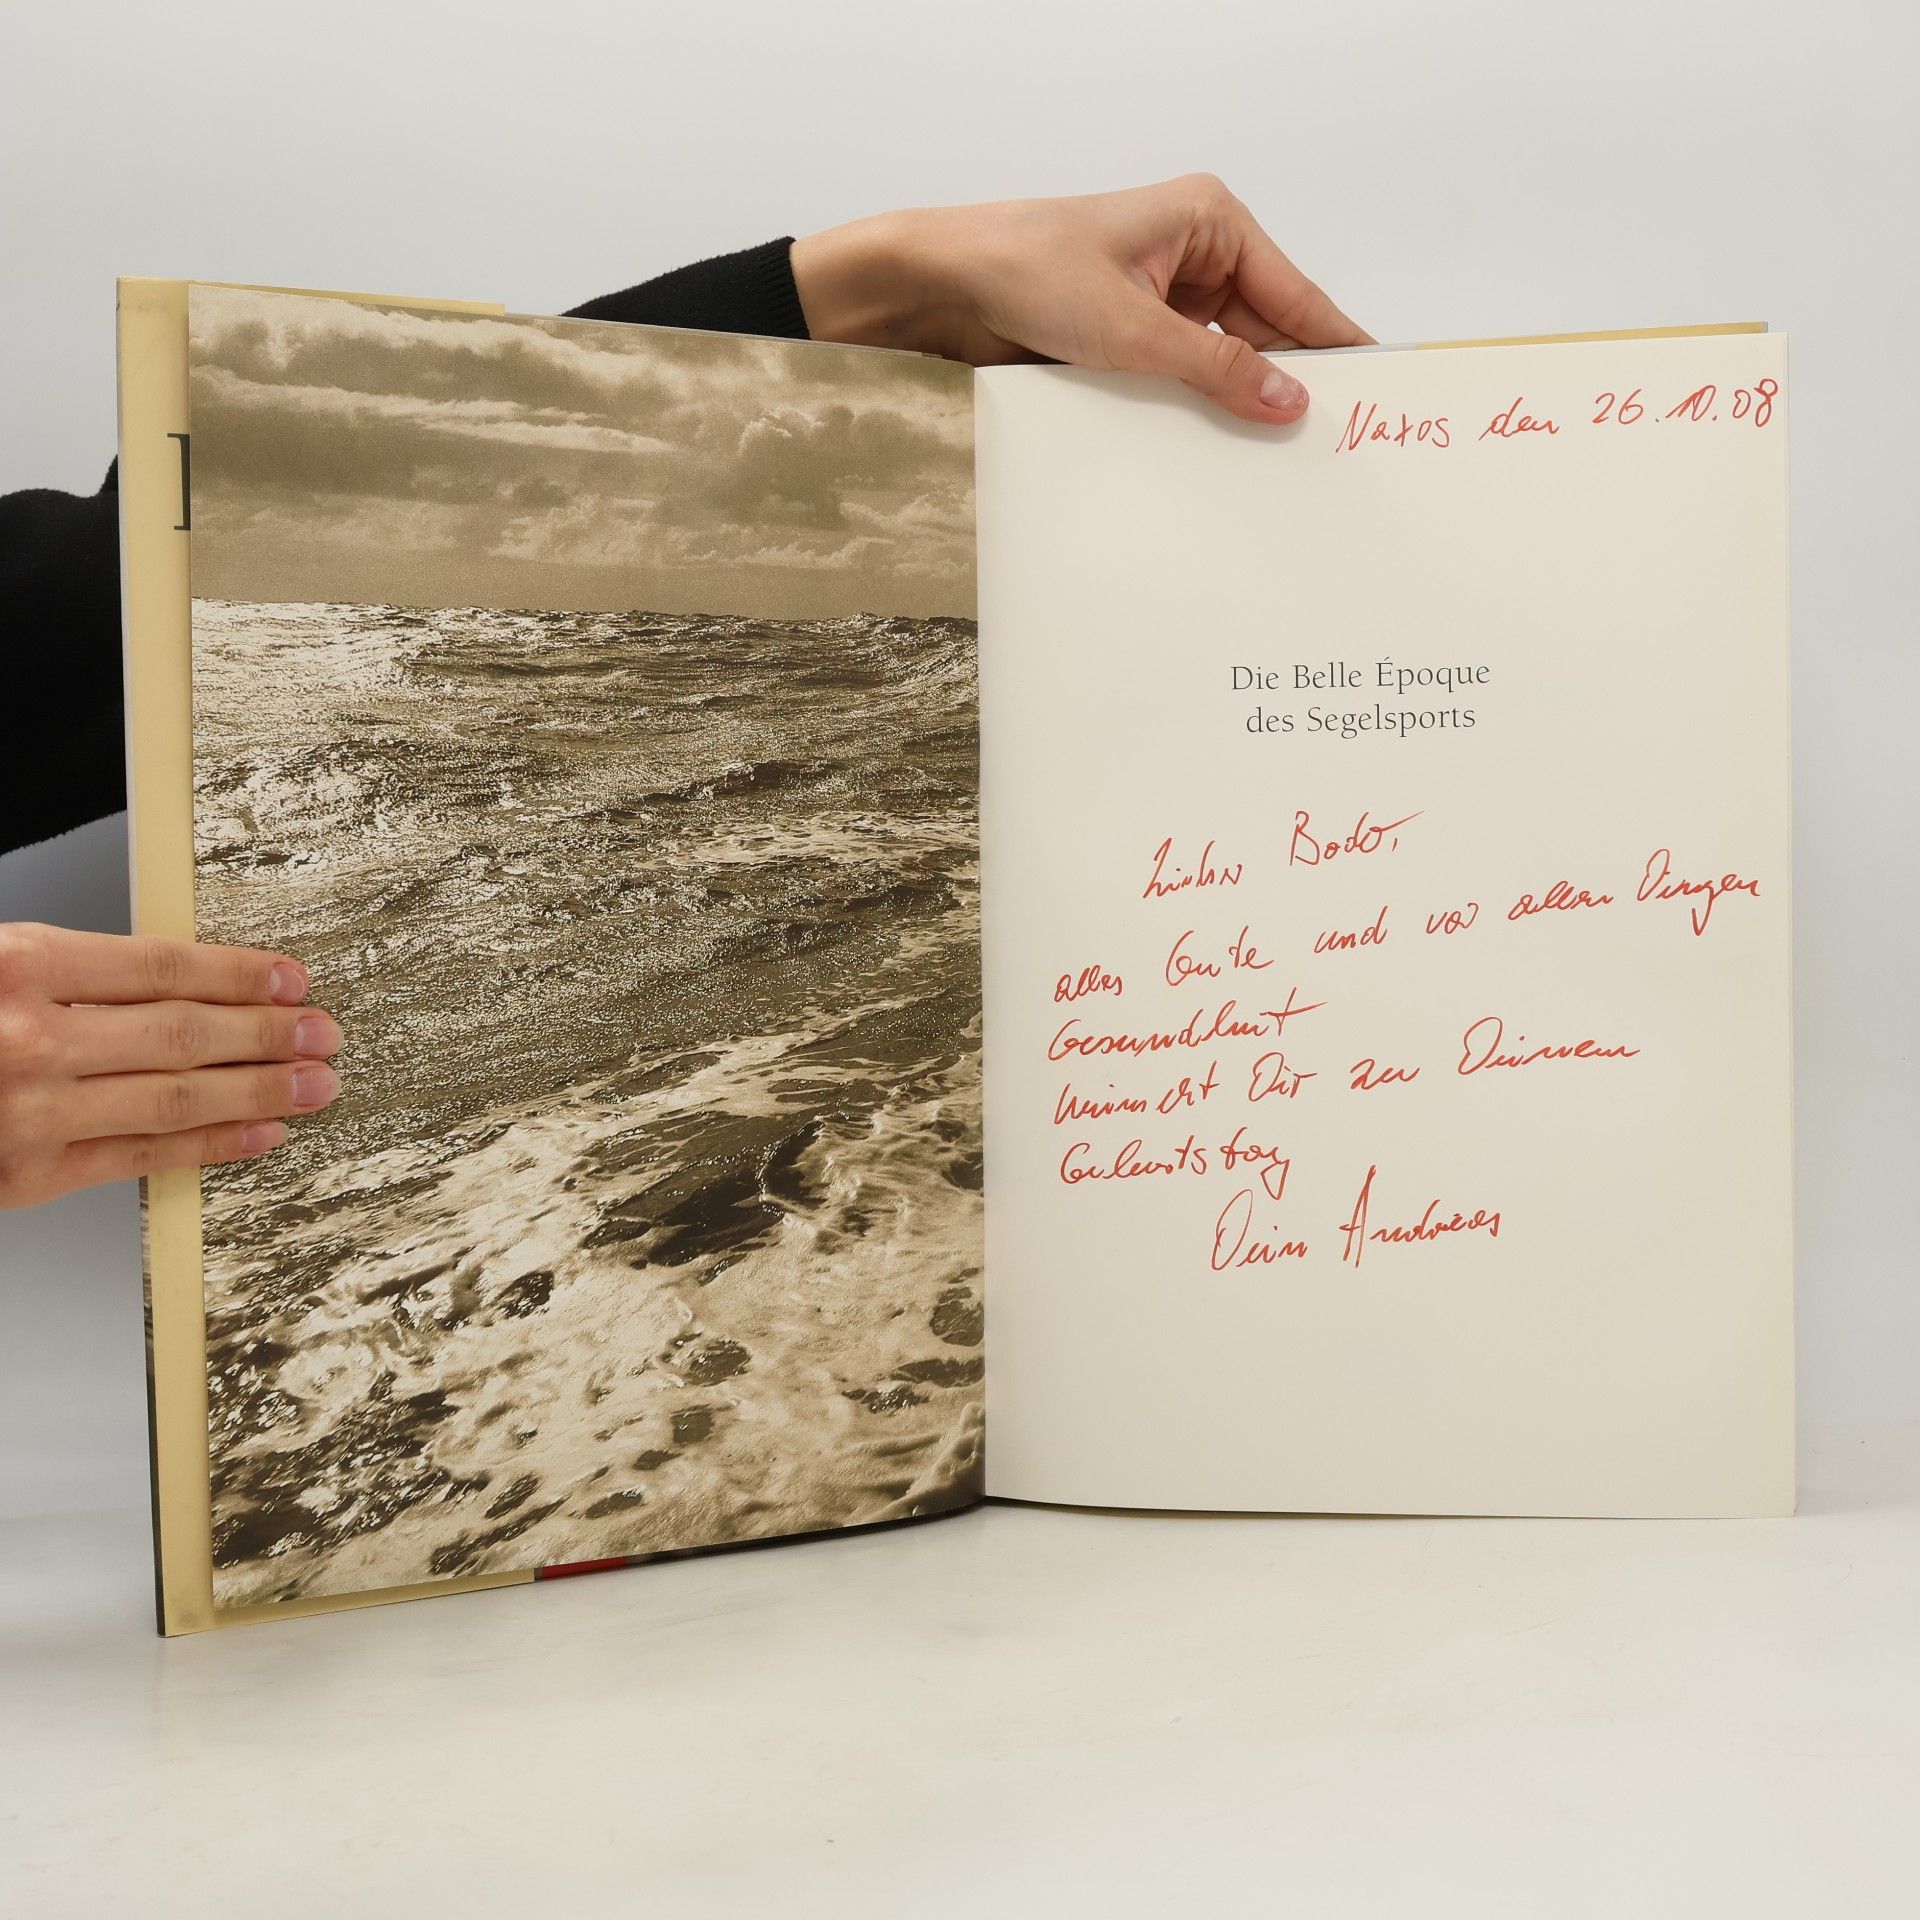 Naxos den 26.10.08
Die Belle Époque
des Segelsports
Lieber Bodo,
alles Gute und vor allen Dingen
Gesundheit
wünscht Dir zu Deinem
Geburtstag
Dein Andreas